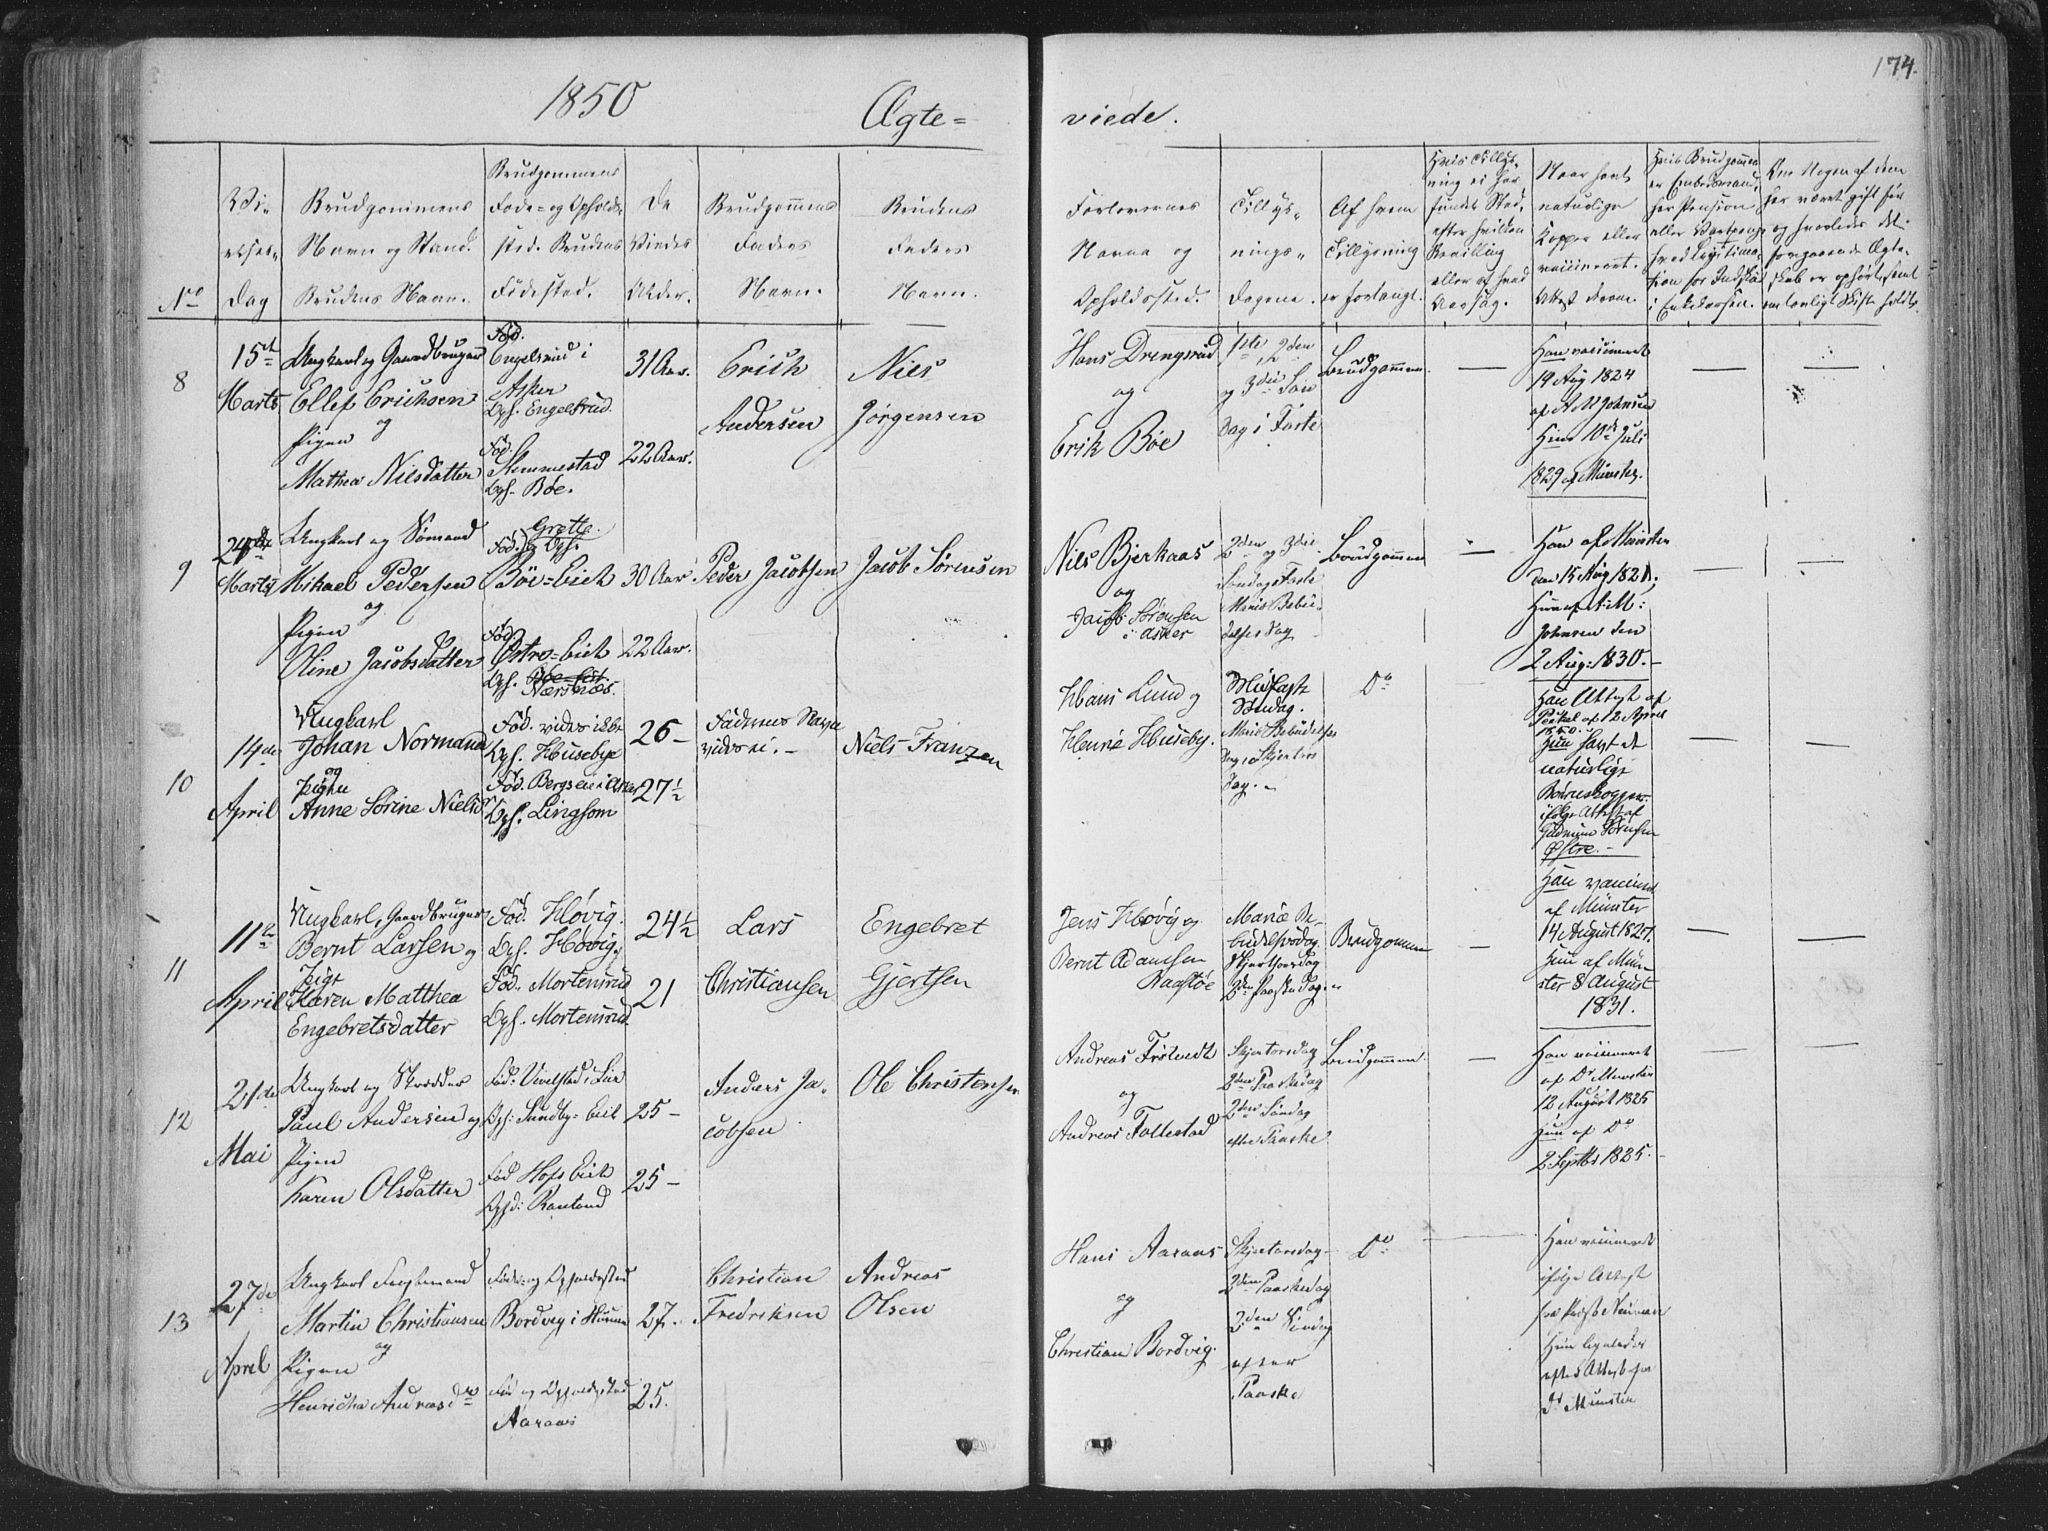 1850
Ægte=
viede.
174.
No
Vi-
elses-
Dag
Brudgommens
Navn og Stand.
Brudens Navn.
Brudgommens
Føde- og Opholds-
sted. Brudens
Fødested.
De
Viedes
Alder.
Brudgommens
Faders
Navn.
Brudens
Faders
Navn.
Forlovernes
Navne og
Opholdssted.
Tillys-
nings-
Dagene.
Af hvem
Tillysning
er forlangt.
Hvis Tillys-
ning ei har
fundet Sted,
efter hvilken
Bevilling
eller af hvad
Aarsag.
Naar havt
naturlige
Kopper eller
vaccineret.
Attest derom.
Hvis Brudgommen
er Embedsmand,
Om Nogen af dem
har været gift før
og hvorledes det
foregaaende Ægte-
skab er ophørt, samt
8
15de
Marts
Ungkarl og Gaardbruger
Ellef Erichsen
og
Pigen
Mathea Nielsdatter
Fød.
Engelsrud i
Asker
Oph. Engelsrud.
Fød.
Slemmestad
Oph. Bøe.
31 Aar.
22 Aar.
Erich
Andersen
Niels
Jørgensen
Hans Drengsrud
og
Erik Bøe
1ste, 2den
og 3die Søn
Dag i Faste
Brudgommen.
Han vaccineret
19 Aug 1824
af A M Johnsen
Hun 10de Juli
1829 af Münster.
9
24de
Marts
Ungkarl og Sømand
Mikael Pedersen
og
Pigen
Oline Jacobsdatter
Grette.
Fød. & Oph.
Bøe-Eiet
Fød.
Østre-Eiet
Oph. Bøe-Eiet
Nærsnæs.
30 Aar
22 Aar.
Peder Jacobsen
Jacob Sørensen
Niels Bjerkaas
og
Jacob Sørensen
i Asker
2den og 3die
Søndag i Faste
Mariæ Bebu-
delses Dag
Brudgommen
Han af Münster
den 15 Aug 1821;
Hun af A. M:
Johnsen den
2 Aug: 1830.
10
14de
April
Ungkarl
Johan Normand
og
Pigen
Anne Sørine Nielsd.
Oph. Huseby
Fød. Bergseie i Asker
Oph. Lingsom
26
27½
Fadrens Navn
vides ei.
Niels Franzen
Hans Lund og
Henrie Huseby.
Midfaste
Søndag.
Mariæ Bebudelses
Dag, Skjertors
Dag.
Do
Han Attest af
12 April
Hun havt de
naturlige
Børnekopper
ifølge Attest af
Gudmun Sørensen
Østre.
11
11te
April
Ungkarl, Gaardbruger
Bernt Larsen og
Pige
Karen Matthea
Engebretsdatter
Fød. Høvig.
Oph. Høvig.
Fød. Mortensrud
Oph. Mortensrud.
24½
21
Lars
Christiansen
Engebret
Gjertsen
Jens Høvig og
Bernt Adamsen
Mariæ Be-
budelsesdag
Skjertorsdag
2den Paaskedag.
Brudgommen
Han vaccineret
af Münster
14 August 1827.
Hun af Mün-
ster 8 August
1831.
12
21de
Mai
Ungkarl og Skrædder
Paul Andersen og
Pigen
Karen Olsdatter
Oph: Sundby-Eiet
Fød Hofs Eiet
25
25
Anders Ja-
cobsen
Ole Christensen
Andreas Frøtvedt
og
Andreas Follestad
Skjertorsdag
2den Paaskedag
2den Søndag
efter Paaske
Brudgommen.
Han vaccineret
af Dr Münster
12 August 1825
Hun af Do
2 Septbr 1825.
13
27de
April
Ungkarl
Martin Christiansen
og
Pigen
Henricha Andreasdr
Føde- og Opholdssted
Bordvig i Hurum
Fød og Opholdssted
Aaraas
27.
25.
Christian
Fredriksen
Andreas
Olsen
Hans Aaraas
og
Christian Bordvig.
Skjertorsdag
2den Paaskedag
2den Søndag
efter
Paaske
Do
Han vaccineret
ifølge Attest
fra Præst Neuman
Hun ligeledes
efter Attest fra
Dr Münster